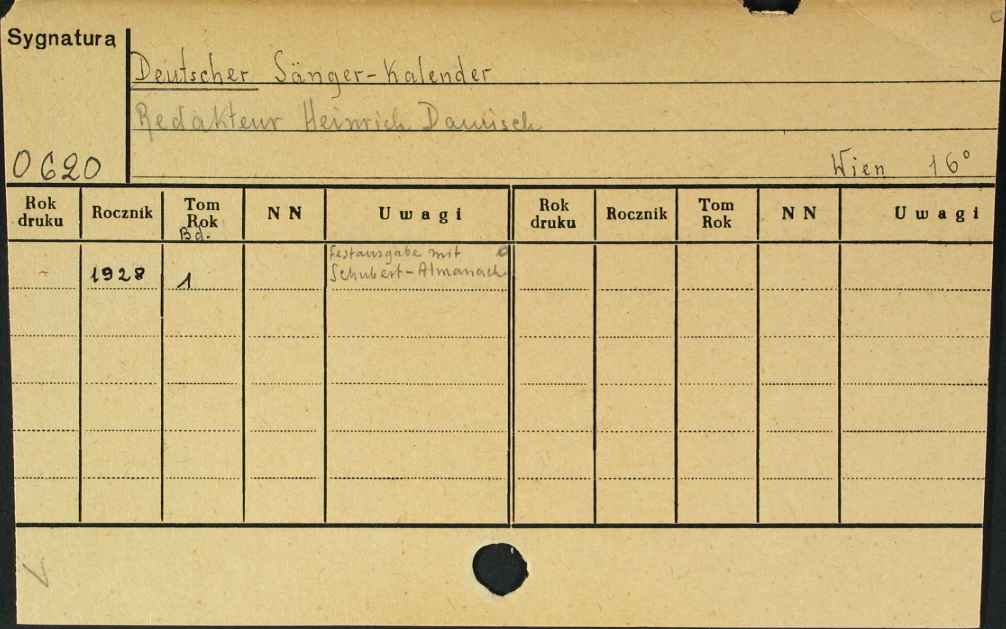 Sygnatura
Deutscher Sänger-Kalender
Redakteur Heinrich Damisch
0620
Wien 16°
Rok druku Rocznik Tom Rok NN Uwagi Rok druku Rocznik Tom Rok NN Uwagi
Bd.
Festausgabe mit
1928 1 Schubert-Almanach
V